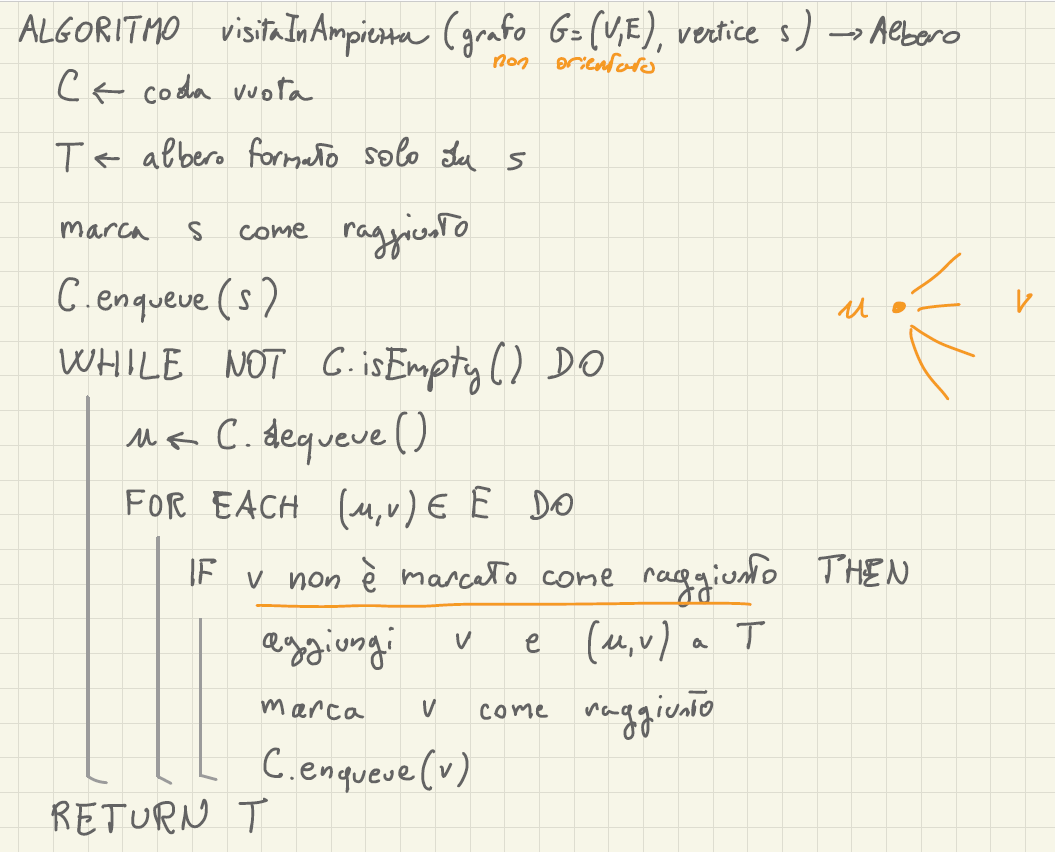 ALGORITMO visitaInAmpiezza (grafo G=(V,E), vertice s) → Albero
non orientato
C ← coda vuota
T ← albero formato solo da s
marca s come raggiunto
C.enqueue(s)
u v
WHILE NOT C.isEmpty() DO
u ← C.dequeue()
FOR EACH (u,v) ∈ E DO
IF v non è marcato come raggiunto THEN
aggiungi v e (u,v) a T
marca v come raggiunto
C.enqueue(v)
RETURN T